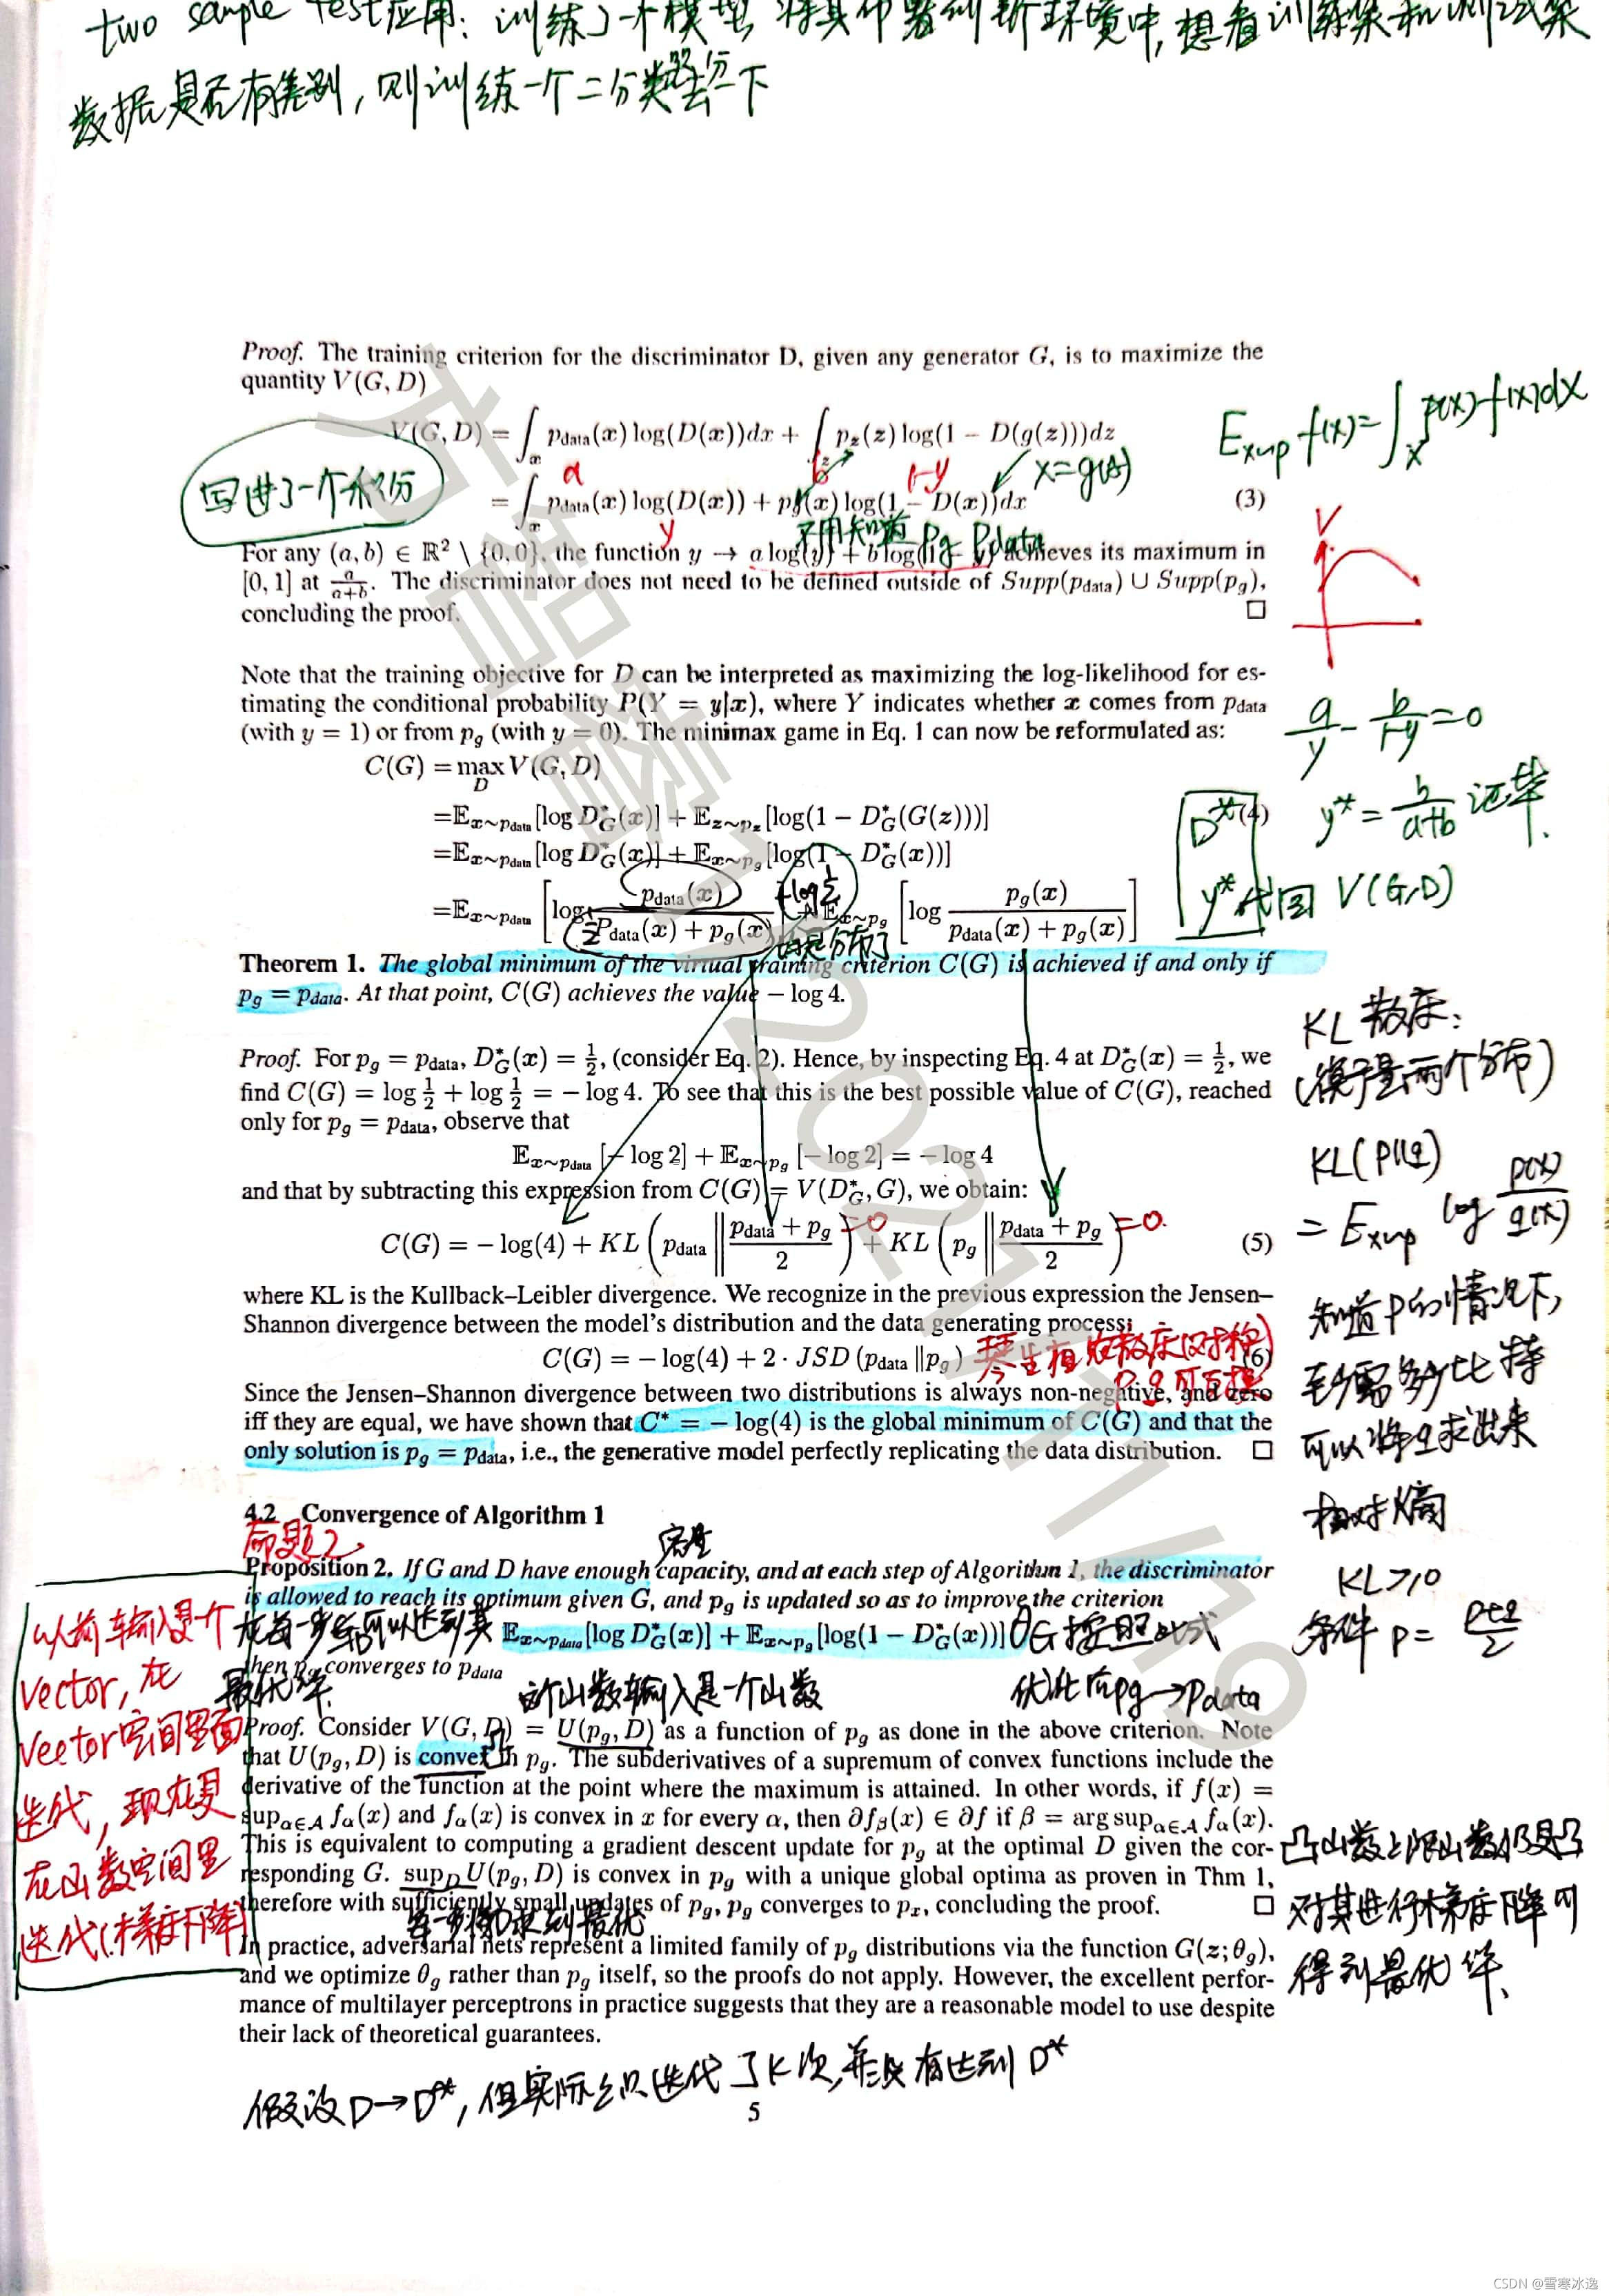 two sample Test应用: 训练了一个模型, 将其部署到新环境中, 想看训练集和测试集
数据是否有差别, 则训练一个二分类器去分一下
Proof. The training criterion for the discriminator D, given any generator G, is to maximize the
quantity V(G, D)
V(G, D) = ∫_x p_data(x) log(D(x))dx + ∫_z p_z(z) log(1 − D(g(z)))dz
E_{x~p} f(x) = ∫_x p(x) f(x) dx
写进了一个积分
a
b
1-y
x=g(z)
= ∫_x p_data(x) log(D(x)) + p_g(x) log(1 − D(x))dx (3)
y
不用知道 Pg Pdata
V
For any (a, b) ∈ ℝ² \ {0, 0}, the function y → a log(y) + b log(1 − y) achieves its maximum in
[0, 1] at a/(a+b). The discriminator does not need to be defined outside of Supp(p_data) ∪ Supp(p_g),
concluding the proof. □
Note that the training objective for D can be interpreted as maximizing the log-likelihood for es-
timating the conditional probability P(Y = y|x), where Y indicates whether x comes from p_data
(with y = 1) or from p_g (with y = 0). The minimax game in Eq. 1 can now be reformulated as:
a/y - b/(1-y) = 0
C(G) = max_D V(G, D)
=𝔼_{x∼p_data}[log D*_G(x)] + 𝔼_{z∼p_z}[log(1 − D*_G(G(z)))] (4)
D*
y* = b/(a+b) 证毕.
=𝔼_{x∼p_data}[log D*_G(x)] + 𝔼_{x∼p_g}[log(1 − D*_G(x))]
y* 代回 V(G,D)
=𝔼_{x∼p_data}[log p_data(x)/(P_data(x) + p_g(x))] + 𝔼_{x∼p_g}[log p_g(x)/(p_data(x) + p_g(x))]
+log 1/2
1/2
Theorem 1. The global minimum of the virtual training criterion C(G) is achieved if and only if
p_g = p_data. At that point, C(G) achieves the value − log 4.
KL散度:
Proof. For p_g = p_data, D*_G(x) = 1/2, (consider Eq. 2). Hence, by inspecting Eq. 4 at D*_G(x) = 1/2, we
find C(G) = log 1/2 + log 1/2 = − log 4. To see that this is the best possible value of C(G), reached
only for p_g = p_data, observe that
𝔼_{x∼p_data}[− log 2] + 𝔼_{x∼p_g}[− log 2] = − log 4
KL(p||q)
= E_{x~p} log p(x)/q(x)
and that by subtracting this expression from C(G) = V(D*_G, G), we obtain:
C(G) = − log(4) + KL(p_data ‖ (p_data + p_g)/2) + KL(p_g ‖ (p_data + p_g)/2) (5)
=0
=0.
where KL is the Kullback–Leibler divergence. We recognize in the previous expression the Jensen–
Shannon divergence between the model's distribution and the data generating process:
C(G) = − log(4) + 2 · JSD(p_data ‖p_g) (6)
p q 可互换
Since the Jensen–Shannon divergence between two distributions is always non-negative, and zero
iff they are equal, we have shown that C* = − log(4) is the global minimum of C(G) and that the
only solution is p_g = p_data, i.e., the generative model perfectly replicating the data distribution. □
知道P的情况下,
至少需多少比特
可以将q求出来
相对熵
KL≥0
条件 p = (p+q)/2
4.2 Convergence of Algorithm 1
命题2
容量
Proposition 2. If G and D have enough capacity, and at each step of Algorithm 1, the discriminator
is allowed to reach its optimum given G, and p_g is updated so as to improve the criterion
𝔼_{x∼p_data}[log D*_G(x)] + 𝔼_{x∼p_g}[log(1 − D*_G(x))]
G按照此式
优化后 pg→Pdata
then p_g converges to p_data
最优解
这个函数输入是一个函数
以前输入是个
vector, 在
vector空间里面
迭代, 现在是
在函数空间里
迭代(梯度下降)
Proof. Consider V(G, D) = U(p_g, D) as a function of p_g as done in the above criterion. Note
that U(p_g, D) is convex in p_g. The subderivatives of a supremum of convex functions include the
凸
derivative of the function at the point where the maximum is attained. In other words, if f(x) =
sup_{α∈A} f_α(x) and f_α(x) is convex in x for every α, then ∂f_β(x) ∈ ∂f if β = arg sup_{α∈A} f_α(x).
This is equivalent to computing a gradient descent update for p_g at the optimal D given the cor-
responding G. sup_D U(p_g, D) is convex in p_g with a unique global optima as proven in Thm 1,
therefore with sufficiently small updates of p_g, p_g converges to p_x, concluding the proof. □
每一步将D求到最优
凸函数上限函数仍是凸
对其进行梯度下降可
得到最优解.
In practice, adversarial nets represent a limited family of p_g distributions via the function G(z; θ_g),
and we optimize θ_g rather than p_g itself, so the proofs do not apply. However, the excellent perfor-
mance of multilayer perceptrons in practice suggests that they are a reasonable model to use despite
their lack of theoretical guarantees.
假设 D→D*, 但实际上只迭代了K次, 并没有达到 D*
5
2021/11/19
CSDN @雪寒冰逸